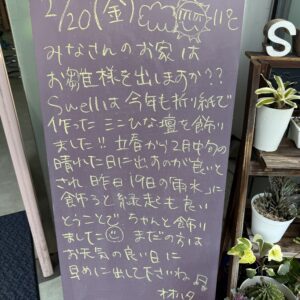 2/20(金)
みなさんのお家は
お雛様を出しますか??
Swellは今年も折り紙で
作ったミニひな壇を飾り
ました!! 立春から2月中旬の
晴れた日に出すのが良いと
され昨日19日の「雨水」に
飾ると縁起も良い
とうことでちゃんと飾り
ました まだの方は
お天気の良い日に
早めに出して下さいね
S